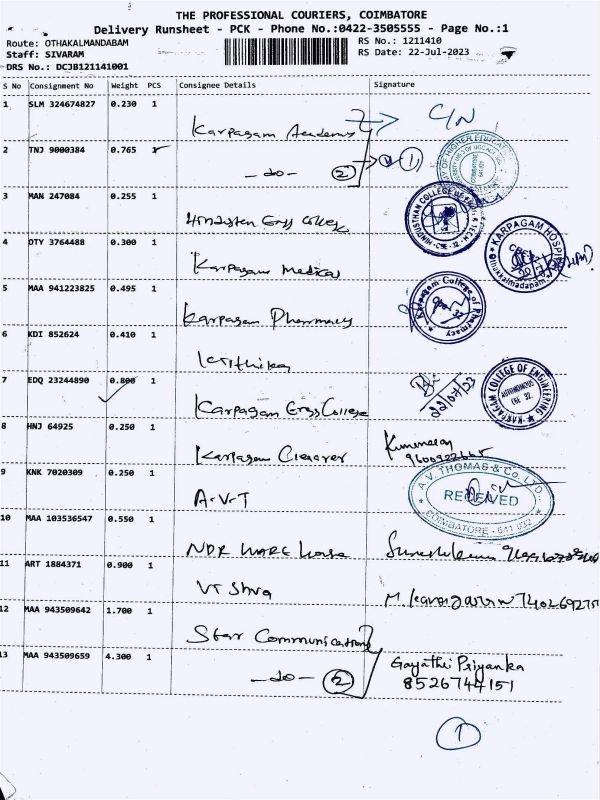 THE PROFESSIONAL COURIERS, COIMBATORE
Delivery Runsheet - PCK - Phone No.:0422-3505555 - Page No.:1
Route: OTHAKALMANDABAM RS No.: 1211410
Staff: SIVARAM RS Date: 22-Jul-2023
DRS No.: DCJB121141001
S No Consignment No Weight PCS Consignee Details Signature
1 SLM 324674827 0.230 1
Karpagam Academy C/N
2 TNJ 9000384 0.765 1
-do- 2 1
3 MAN 247084 0.255 1
Hindustan Engg College
4 DTY 3764488 0.300 1
Karpagam Medical
5 MAA 941223825 0.495 1
Karpagam Pharmacy
6 KDI 852624 0.410 1
Krithika
7 EDQ 23244890 0.800 1
Karpagam Engg College 22/07/23
8 HNJ 64925 0.250 1
Karpagam
9 KNK 7020309 0.250 1
A.V.T
A.V. THOMAS & Co. LTD.,
RECEIVED
COIMBATORE - 641 032
10 MAA 103536547 0.550 1
NDR
11 ART 1884371 0.900 1
VT Shva
12 MAA 943509642 1.700 1
Star Communications
13 MAA 943509659 4.300 1
-do- 2
Gayathri Priyanka
8526744151
1
KARPAGAM HOSPITAL
Othakkalmandapam
Karpagam College of Pharmacy
KARPAGAM COLLEGE OF ENGINEERING
AUTONOMOUS
CBE 32.